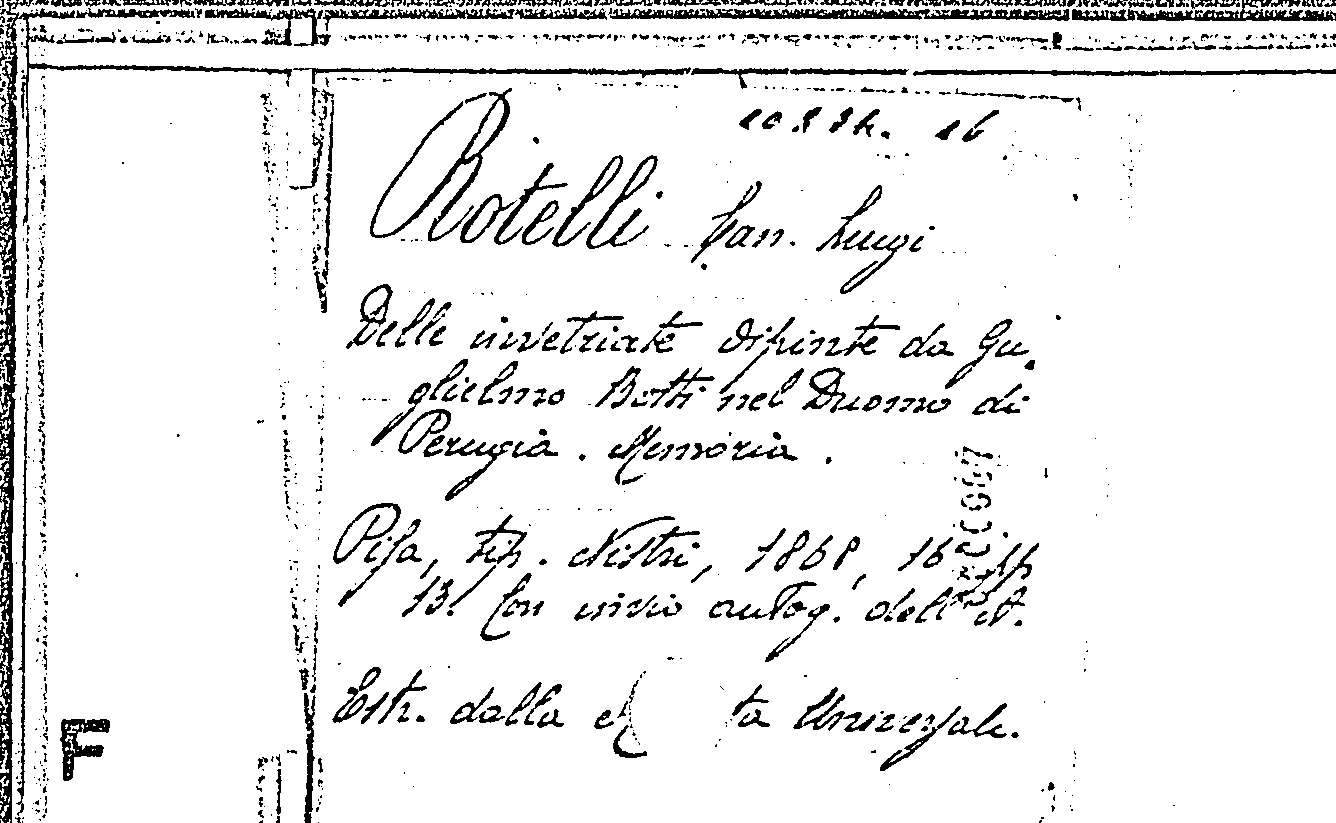 Rotelli Can. Luigi
Delle invetriate dipinte da Gu-
glielmo Botti nel Duomo di
Perugia. Memoria.
Pisa, tip. Nistri, 1868, 16° pp
13. Con invio autog. dell'A.
Estr. dalla ta Universale.
F